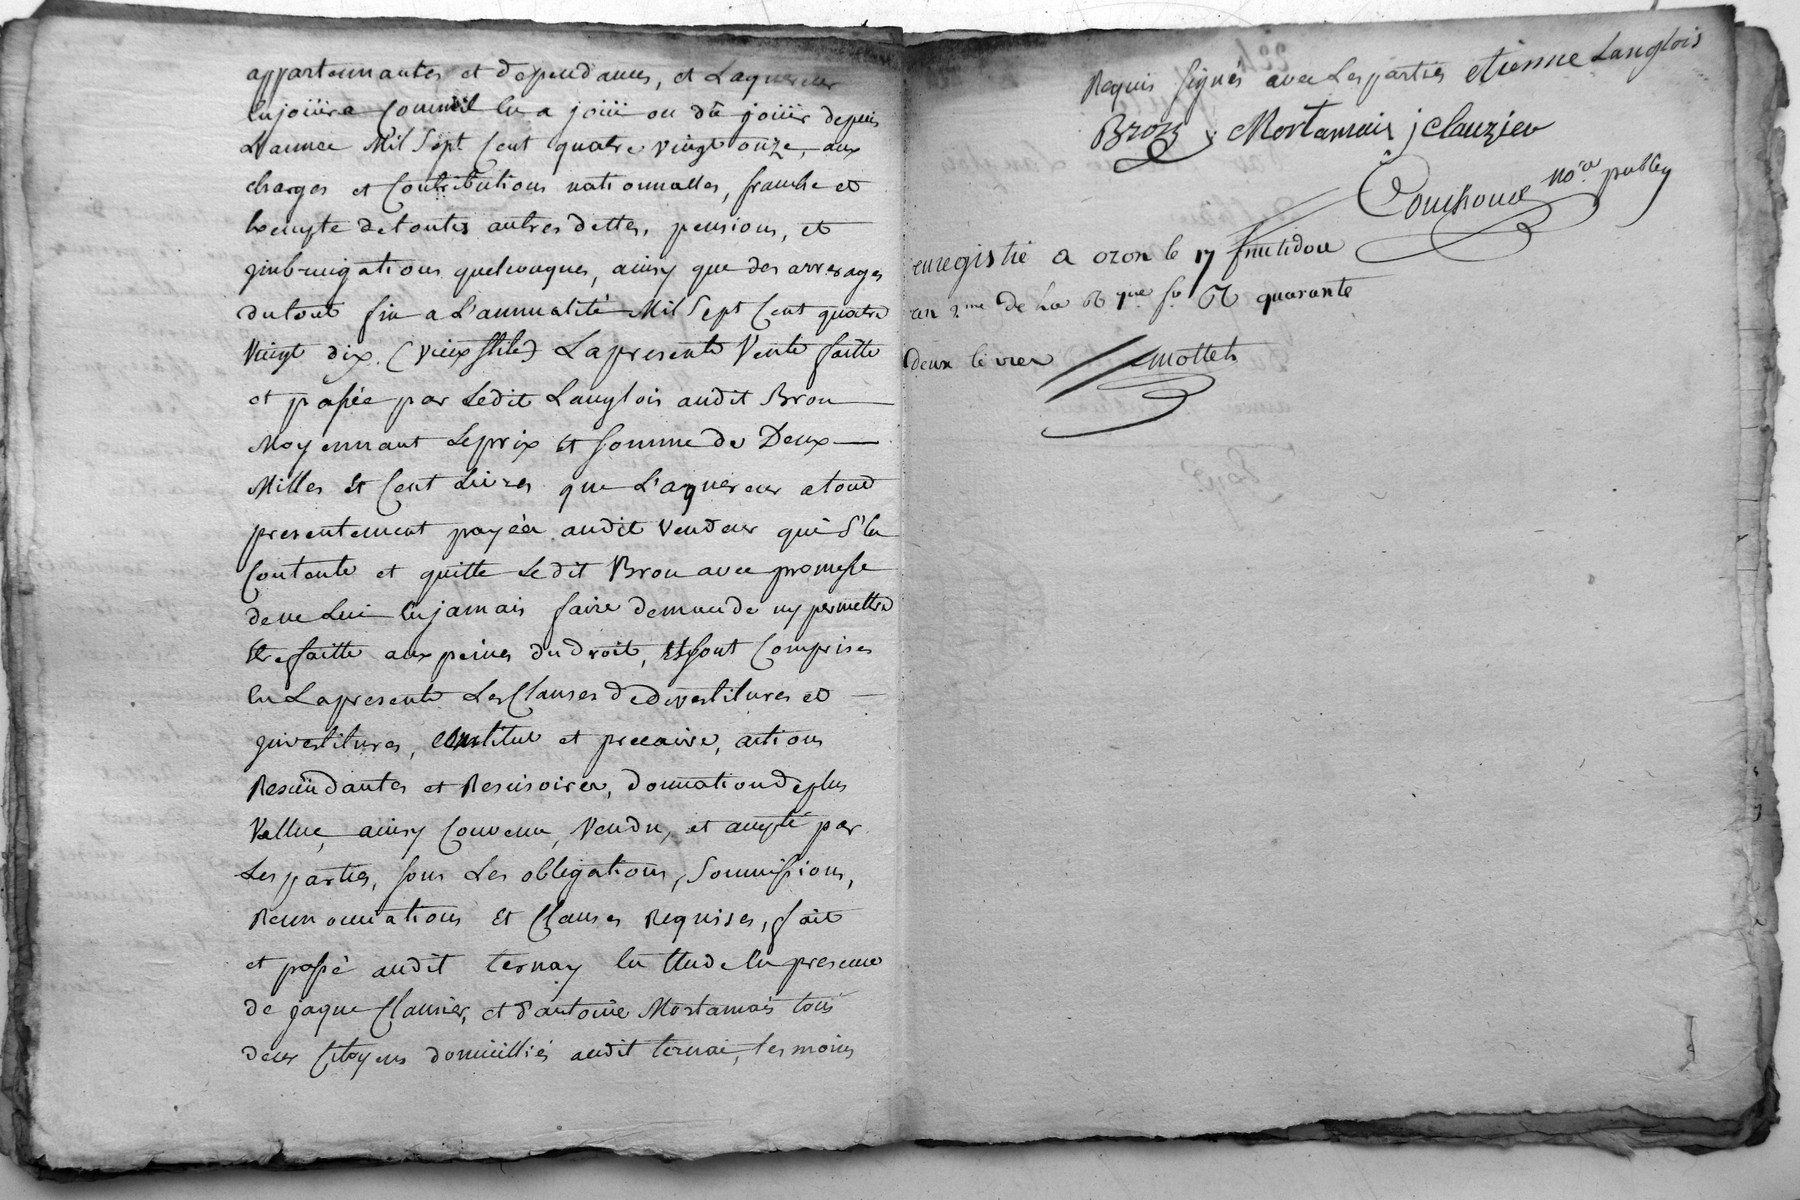 appartennantes et dependances, et Laquereur
En joüira Comme il En a joüii ou dû joüir depuis
L'année Mil Sept Cent quatre vingt onze, aux
charges et Contributions nationnalles, franche et
Exempte de toutes autres dettes, pensions, et
jmbrugations quelconques, ainsy que des arrerages
du tout fin a L'annualité Mil Sept Cent quatre
Vingt dix. (Vieux stile) La presente Vente faitte
et passée par Ledit Langlois audit Bron
Moyennant Le prix Et Somme de Deux
Milles Et Cent Livres que L'aquereur a tout
presentement payée audit Vendeur qui S'En
Contente et quitte Ledit Bron avec promesse
de ne Lui En jamais faire demande ny permettre
Etre faitte aux peines du droit, Et Sont Comprises
En La presente Les Clauses de devestitures et
jnvestitures, Constitut et precaire, actions
Rescindantes et Rescisoires, donnation de plus
Vallue, ainsy Convenu, Vendu, et accepté par
Les parties, sous Les obligations, Soumissions,
Rennonciations Et Clauses Requises, fait
et passé audit ternay En Etude En presence
de jaque Clausier, et d'antoine Mortamais tous
deux Citoyens domicilliés audit ternai, tesmoins
Requis Signés avec Les parties etienne Langlois
Bron Mortamais j Clauzier
Couchoud no.re public
enregistré a ozon le 17 fructidor
an 2.me de La R que fr. quarante
deux livres Mottet